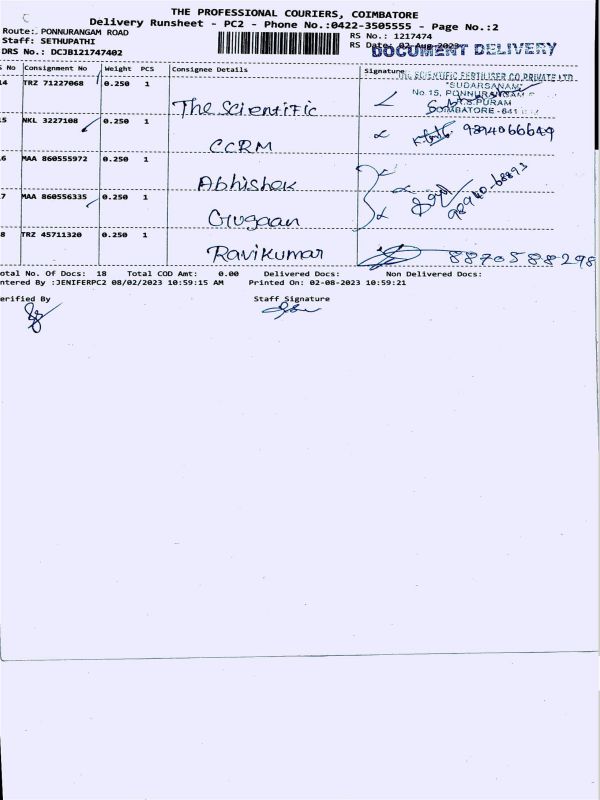 THE PROFESSIONAL COURIERS, COIMBATORE
Delivery Runsheet - PC2 - Phone No.:0422-3505555 - Page No.:2
Route: PONNURANGAM ROAD
Staff: SETHUPATHI
DRS No.: DCJB121747402
RS No.: 1217474
RS Date: 02-Aug-2023
DOCUMENT DELIVERY
S No Consignment No Weight PCS Consignee Details Signature
14 TRZ 71227068 0.250 1
The Scientific
THE SCIENTIFIC FERTILISER CO.PRIVATE LTD
"SUDARSANAM"
No.15, PONNURANGAM
R.S.PURAM
COIMBATORE - 641
5 NKL 3227108 0.250 1
CCRM
9894066649
6 MAA 860555972 0.250 1
Abhishek
7 MAA 860556335 0.250 1
Gugaan
8 TRZ 45711320 0.250 1
Ravikumar
8870588298
otal No. Of Docs: 18 Total COD Amt: 0.00 Delivered Docs: Non Delivered Docs:
ntered By :JENIFERPC2 08/02/2023 10:59:15 AM Printed On: 02-08-2023 10:59:21
erified By Staff Signature